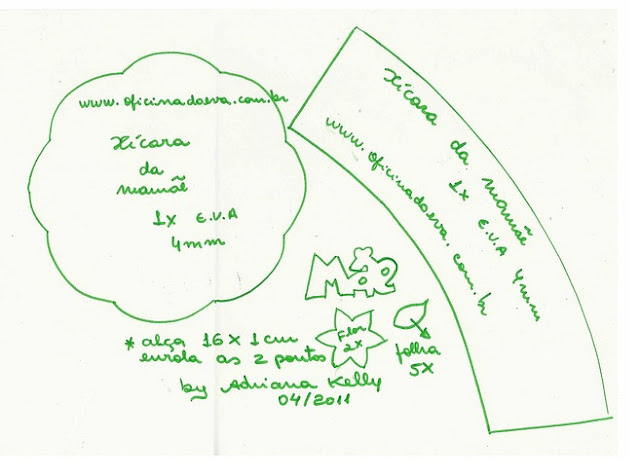 www.oficinadaeva.com.br
Xícara
da
mamãe
1x E.V.A
4mm
Xícara da mamãe
1x E.V.A 4mm
www.oficinadaeva.com.br
Mãe
Flor
2x
folha
5x
* alça 16 x 1 cm
enrola as 2 pontas
by Adriana Kelly
04/2011